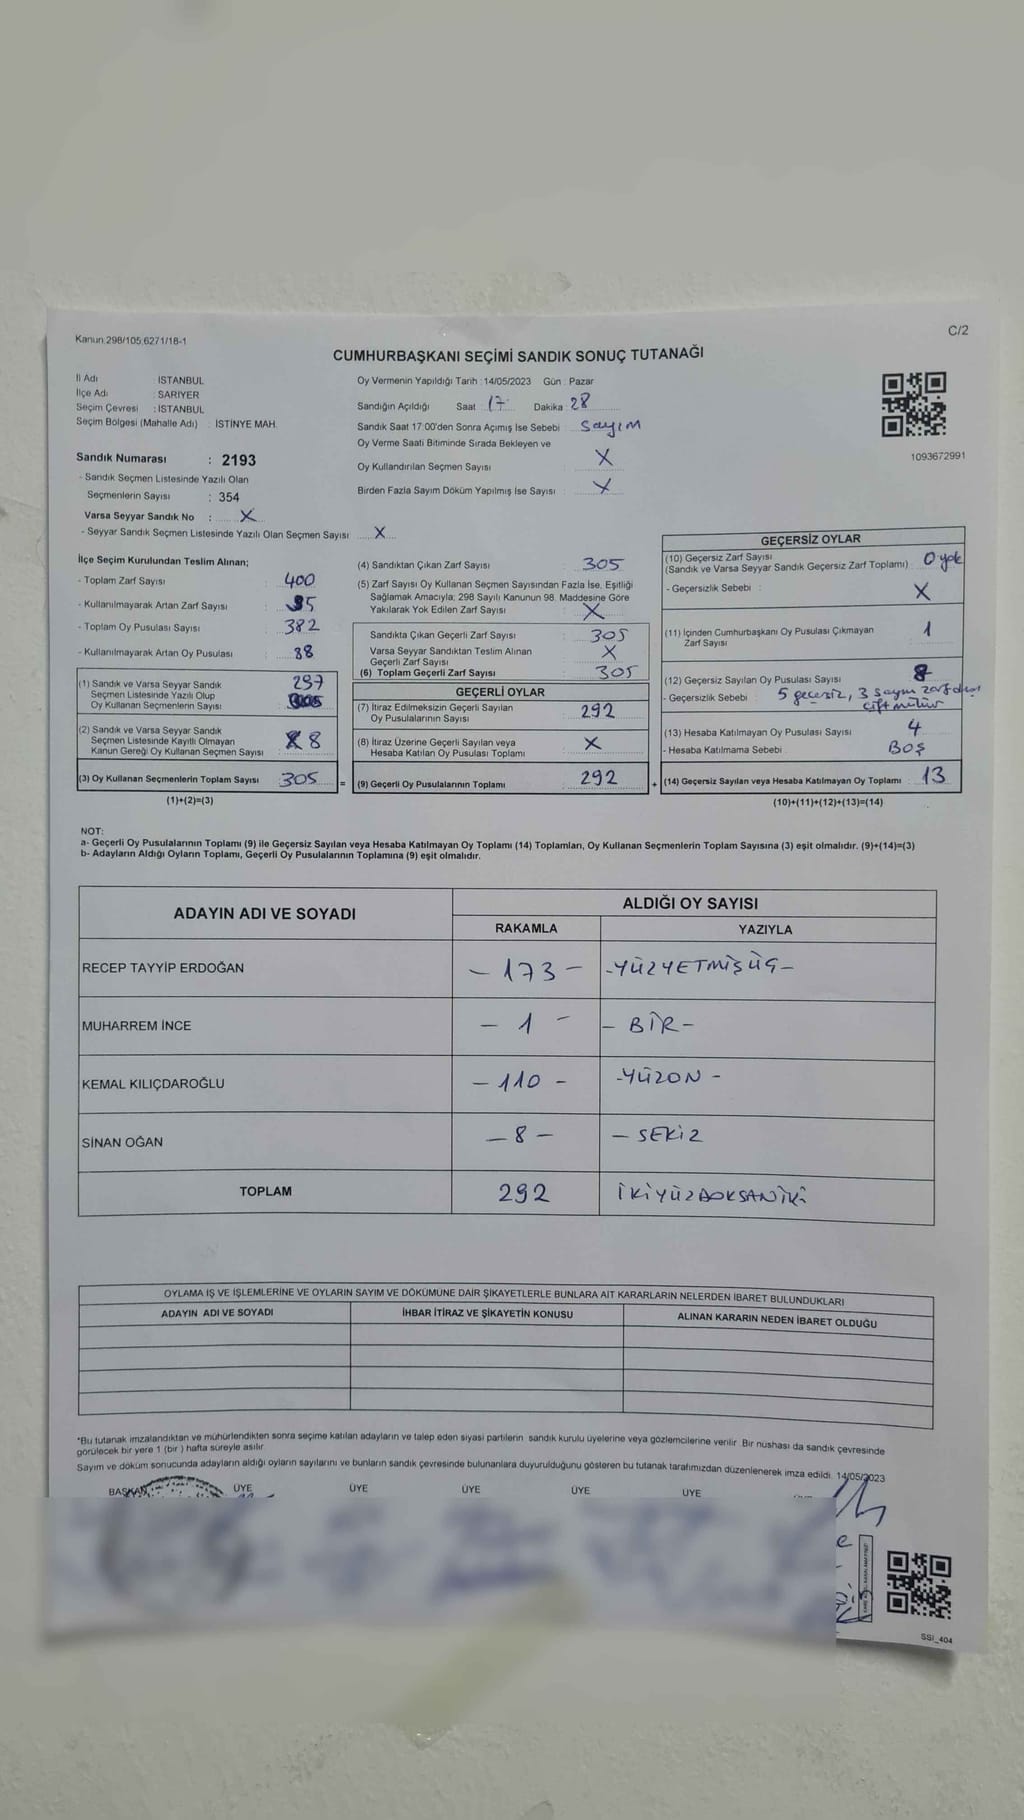 Kanun 298/105,6271/18-1
C/2
CUMHURBAŞKANI SEÇİMİ SANDIK SONUÇ TUTANAĞI
İl Adı : İSTANBUL
İlçe Adı : SARIYER
Seçim Çevresi : İSTANBUL
Seçim Bölgesi (Mahalle Adı) : İSTİNYE MAH.
Sandık Numarası : 2193
- Sandık Seçmen Listesinde Yazılı Olan
Seçmenlerin Sayısı : 354
Varsa Seyyar Sandık No : X
- Seyyar Sandık Seçmen Listesinde Yazılı Olan Seçmen Sayısı X
Oy Vermenin Yapıldığı Tarih : 14/05/2023 Gün : Pazar
Sandığın Açıldığı Saat 17 Dakika 28
Sandık Saat 17:00'den Sonra Açımış İse Sebebi : Sayım
Oy Verme Saati Bitiminde Sırada Bekleyen ve
Oy Kullandırılan Seçmen Sayısı : X
Birden Fazla Sayım Döküm Yapılmış İse Sayısı : X
1093672991
İlçe Seçim Kurulundan Teslim Alınan;
- Toplam Zarf Sayısı : 400
- Kullanılmayarak Artan Zarf Sayısı : 95
- Toplam Oy Pusulası Sayısı : 382
- Kullanılmayarak Artan Oy Pusulası : 88
(1) Sandık ve Varsa Seyyar Sandık
Seçmen Listesinde Yazılı Olup
Oy Kullanan Seçmenlerin Sayısı : 297
(2) Sandık ve Varsa Seyyar Sandık
Seçmen Listesinde Kayıtlı Olmayan
Kanun Gereği Oy Kullanan Seçmen Sayısı : 8
(3) Oy Kullanan Seçmenlerin Toplam Sayısı : 305 =
(1)+(2)=(3)
(4) Sandıktan Çıkan Zarf Sayısı : 305
(5) Zarf Sayısı Oy Kullanan Seçmen Sayısından Fazla İse, Eşitliği
Sağlamak Amacıyla; 298 Sayılı Kanunun 98. Maddesine Göre
Yakılarak Yok Edilen Zarf Sayısı : X
Sandıkta Çıkan Geçerli Zarf Sayısı : 305
Varsa Seyyar Sandıktan Teslim Alınan
Geçerli Zarf Sayısı : X
(6) Toplam Geçerli Zarf Sayısı : 305
GEÇERLİ OYLAR
(7) İtiraz Edilmeksizin Geçerli Sayılan
Oy Pusulalarının Sayısı : 292
(8) İtiraz Üzerine Geçerli Sayılan veya
Hesaba Katılan Oy Pusulası Toplamı : X
(9) Geçerli Oy Pusulalarının Toplamı : 292 +
GEÇERSİZ OYLAR
(10) Geçersiz Zarf Sayısı
(Sandık ve Varsa Seyyar Sandık Geçersiz Zarf Toplamı) : 0 yok
- Geçersizlik Sebebi : X
(11) İçinden Cumhurbaşkanı Oy Pusulası Çıkmayan
Zarf Sayısı : 1
(12) Geçersiz Sayılan Oy Pusulası Sayısı : 8
- Geçersizlik Sebebi : 5 geçersiz, 3 sayım zarfdan
çift mühür
(13) Hesaba Katılmayan Oy Pusulası Sayısı : 4
- Hesaba Katılmama Sebebi : BOŞ
(14) Geçersiz Sayılan veya Hesaba Katılmayan Oy Toplamı : 13
(10)+(11)+(12)+(13)=(14)
NOT:
a- Geçerli Oy Pusulalarının Toplamı (9) ile Geçersiz Sayılan veya Hesaba Katılmayan Oy Toplamı (14) Toplamları, Oy Kullanan Seçmenlerin Toplam Sayısına (3) eşit olmalıdır. (9)+(14)=(3)
b- Adayların Aldığı Oyların Toplamı, Geçerli Oy Pusulalarının Toplamına (9) eşit olmalıdır.
ADAYIN ADI VE SOYADI
ALDIĞI OY SAYISI
RAKAMLA YAZIYLA
RECEP TAYYİP ERDOĞAN - 173 - - YÜZYETMİŞÜÇ -
MUHARREM İNCE - 1 - - BİR -
KEMAL KILIÇDAROĞLU - 110 - - YÜZON -
SİNAN OĞAN - 8 - - SEKİZ
TOPLAM 292 İKİYÜZDOKSANİKİ
OYLAMA İŞ VE İŞLEMLERİNE VE OYLARIN SAYIM VE DÖKÜMÜNE DAİR ŞİKAYETLERLE BUNLARA AİT KARARLARIN NELERDEN İBARET BULUNDUKLARI
ADAYIN ADI VE SOYADI İHBAR İTİRAZ VE ŞİKAYETİN KONUSU ALINAN KARARIN NEDEN İBARET OLDUĞU
*Bu tutanak imzalandıktan ve mühürlendikten sonra seçime katılan adayların ve talep eden siyasi partilerin sandık kurulu üyelerine veya gözlemcilerine verilir. Bir nüshası da sandık çevresinde
görülecek bir yere 1 (bir) hafta süreyle asılır.
Sayım ve döküm sonucunda adayların aldığı oyların sayılarını ve bunların sandık çevresinde bulunanlara duyurulduğunu gösteren bu tutanak tarafımızdan düzenlenerek imza edildi. 14/05/2023
BAŞKAN ÜYE ÜYE ÜYE ÜYE ÜYE
SSI_404